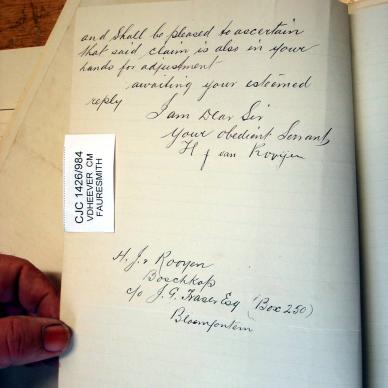 and Shall be pleased to ascertain
that said claim is also in your
hands for adjustment
awaiting your esteemed
reply
I am Dear Sir
Your obedient Servant
H J van Rooijen
CJC 1426/984
VDHEEVER CM
FAURESMITH
H. J. v Rooyen
Boschkop
c/o J. G. Fraser Esq (Box 250)
Bloemfontein